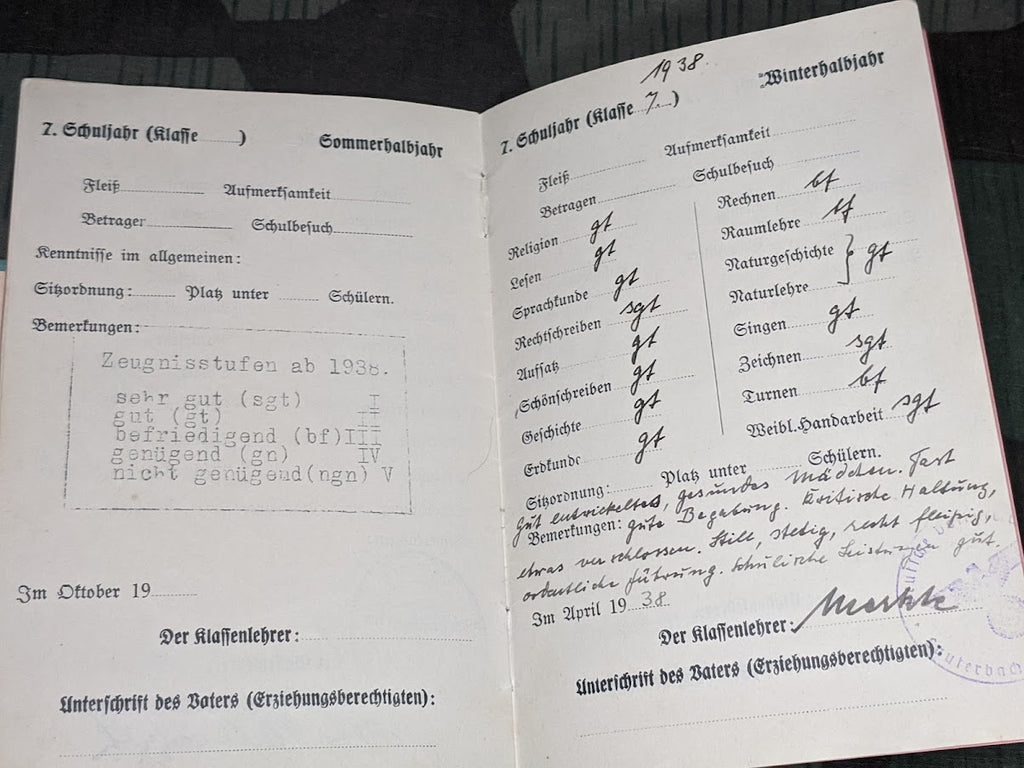 7. Schuljahr (Klasse ........) Sommerhalbjahr
Fleiß ........ Aufmerksamkeit ........
Betragen ........ Schulbesuch ........
Kenntnisse im allgemeinen:
Sitzordnung: ........ Platz unter ........ Schülern.
Bemerkungen:
Zeugnisstufen ab 1938.
sehr gut (sgt) I
gut (gt) II
befriedigend (bf) III
genügend (gn) IV
nicht genügend (ngn) V
Im Oktober 19 ........
Der Klassenlehrer:
Unterschrift des Vaters (Erziehungsberechtigten):
1938.
7. Schuljahr (Klasse 7.) Winterhalbjahr
Fleiß ........ Aufmerksamkeit ........
Betragen ........ Schulbesuch ........
Religion gt
Lesen gt
Sprachkunde gt
Rechtschreiben sgt
Aufsatz gt
Schönschreiben gt
Geschichte gt
Erdkunde gt
Rechnen bf
Raumlehre bf
Naturgeschichte } gt
Naturlehre
Singen gt
Zeichnen sgt
Turnen bf
Weibl. Handarbeit sgt
Sitzordnung: ........ Platz unter ........ Schülern.
Gut entwickeltes, gesundes Mädchen. Fast
Bemerkungen: gute Begabung. Kritische Haltung,
etwas verschlossen. Still, stetig, recht fleißig,
ordentliche Führung. Schulische Leistungen gut.
Im April 19 38
Der Klassenlehrer:
Unterschrift des Vaters (Erziehungsberechtigten):